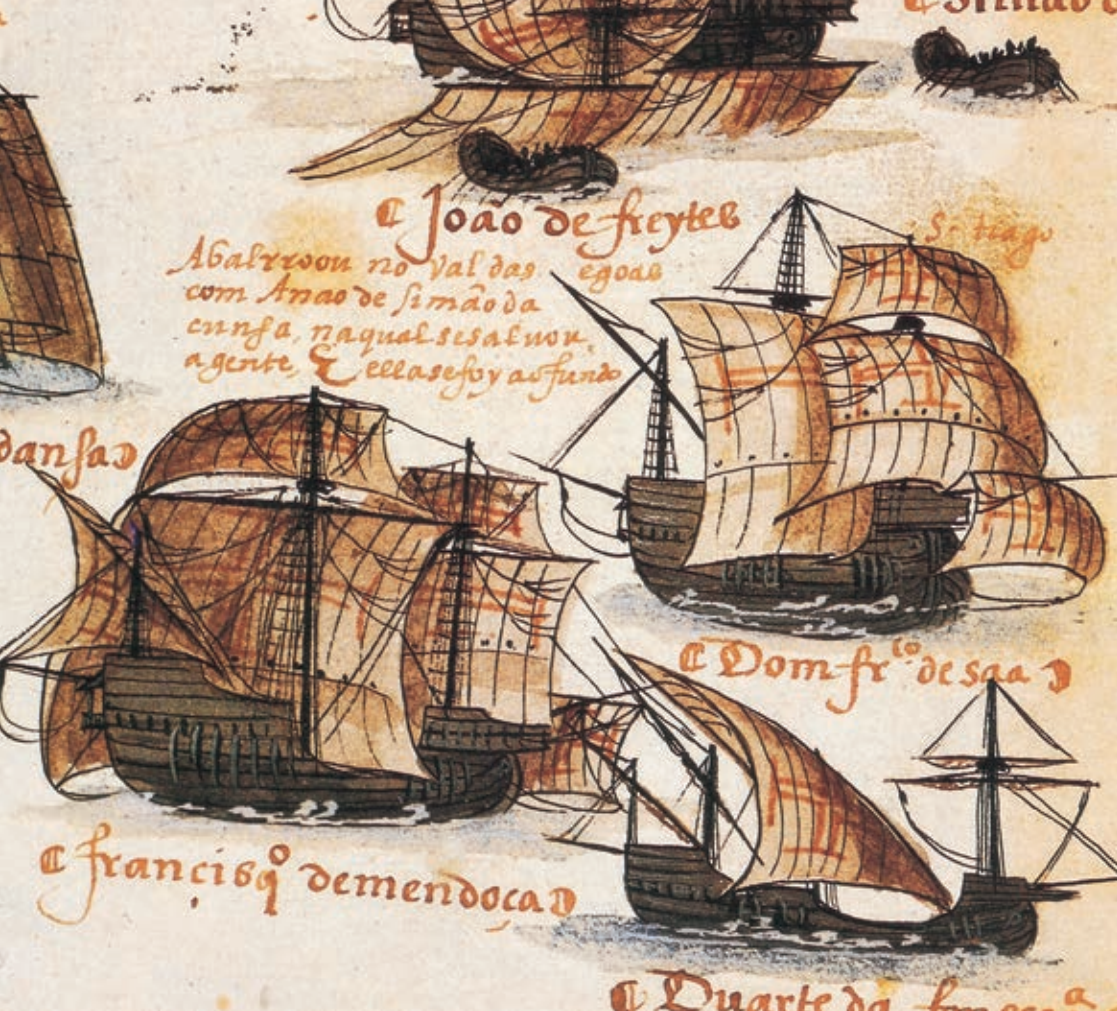 Simão d
C João de freyteB
Abalrroou no Val das egoas
com Anao de Simão da
cunha, naqual sesaluou
agente, & ellasefoy aofundo
S. tiago
danha
C Dom frco. de saa
C francisqo demendoça
C Duarte da fonseca